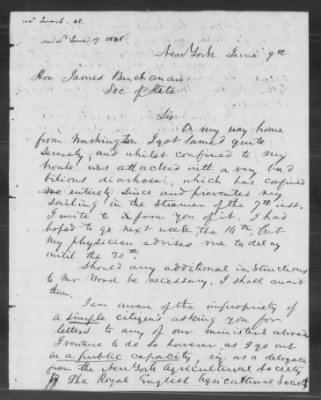 June 17 1848
New York June 9th
Hon James Buchanan
Sec of State
Sir
On my way home
from Washington I got lamed quite
severely, and whilst confined to my
house was attacked with a very bad
bilious diarhoea, which has confined
me entirely since and prevented my
sailing in the steamer of the 7th inst.
I write to inform you of it. I had
hoped to go next week the 14th, but
my physician advises me to delay
until the 20th.
Should any additional instructions
to Mr Wood be necessary, I shall await
them.
I am aware of the impropriety of
a simple citizen's asking you for
letters to any of our ministers abroad
I venture to do so however, as I go out
in a public capacity, viz, as a delegate
from the New York Agricultural Society
to The Royal English Agricultural Society